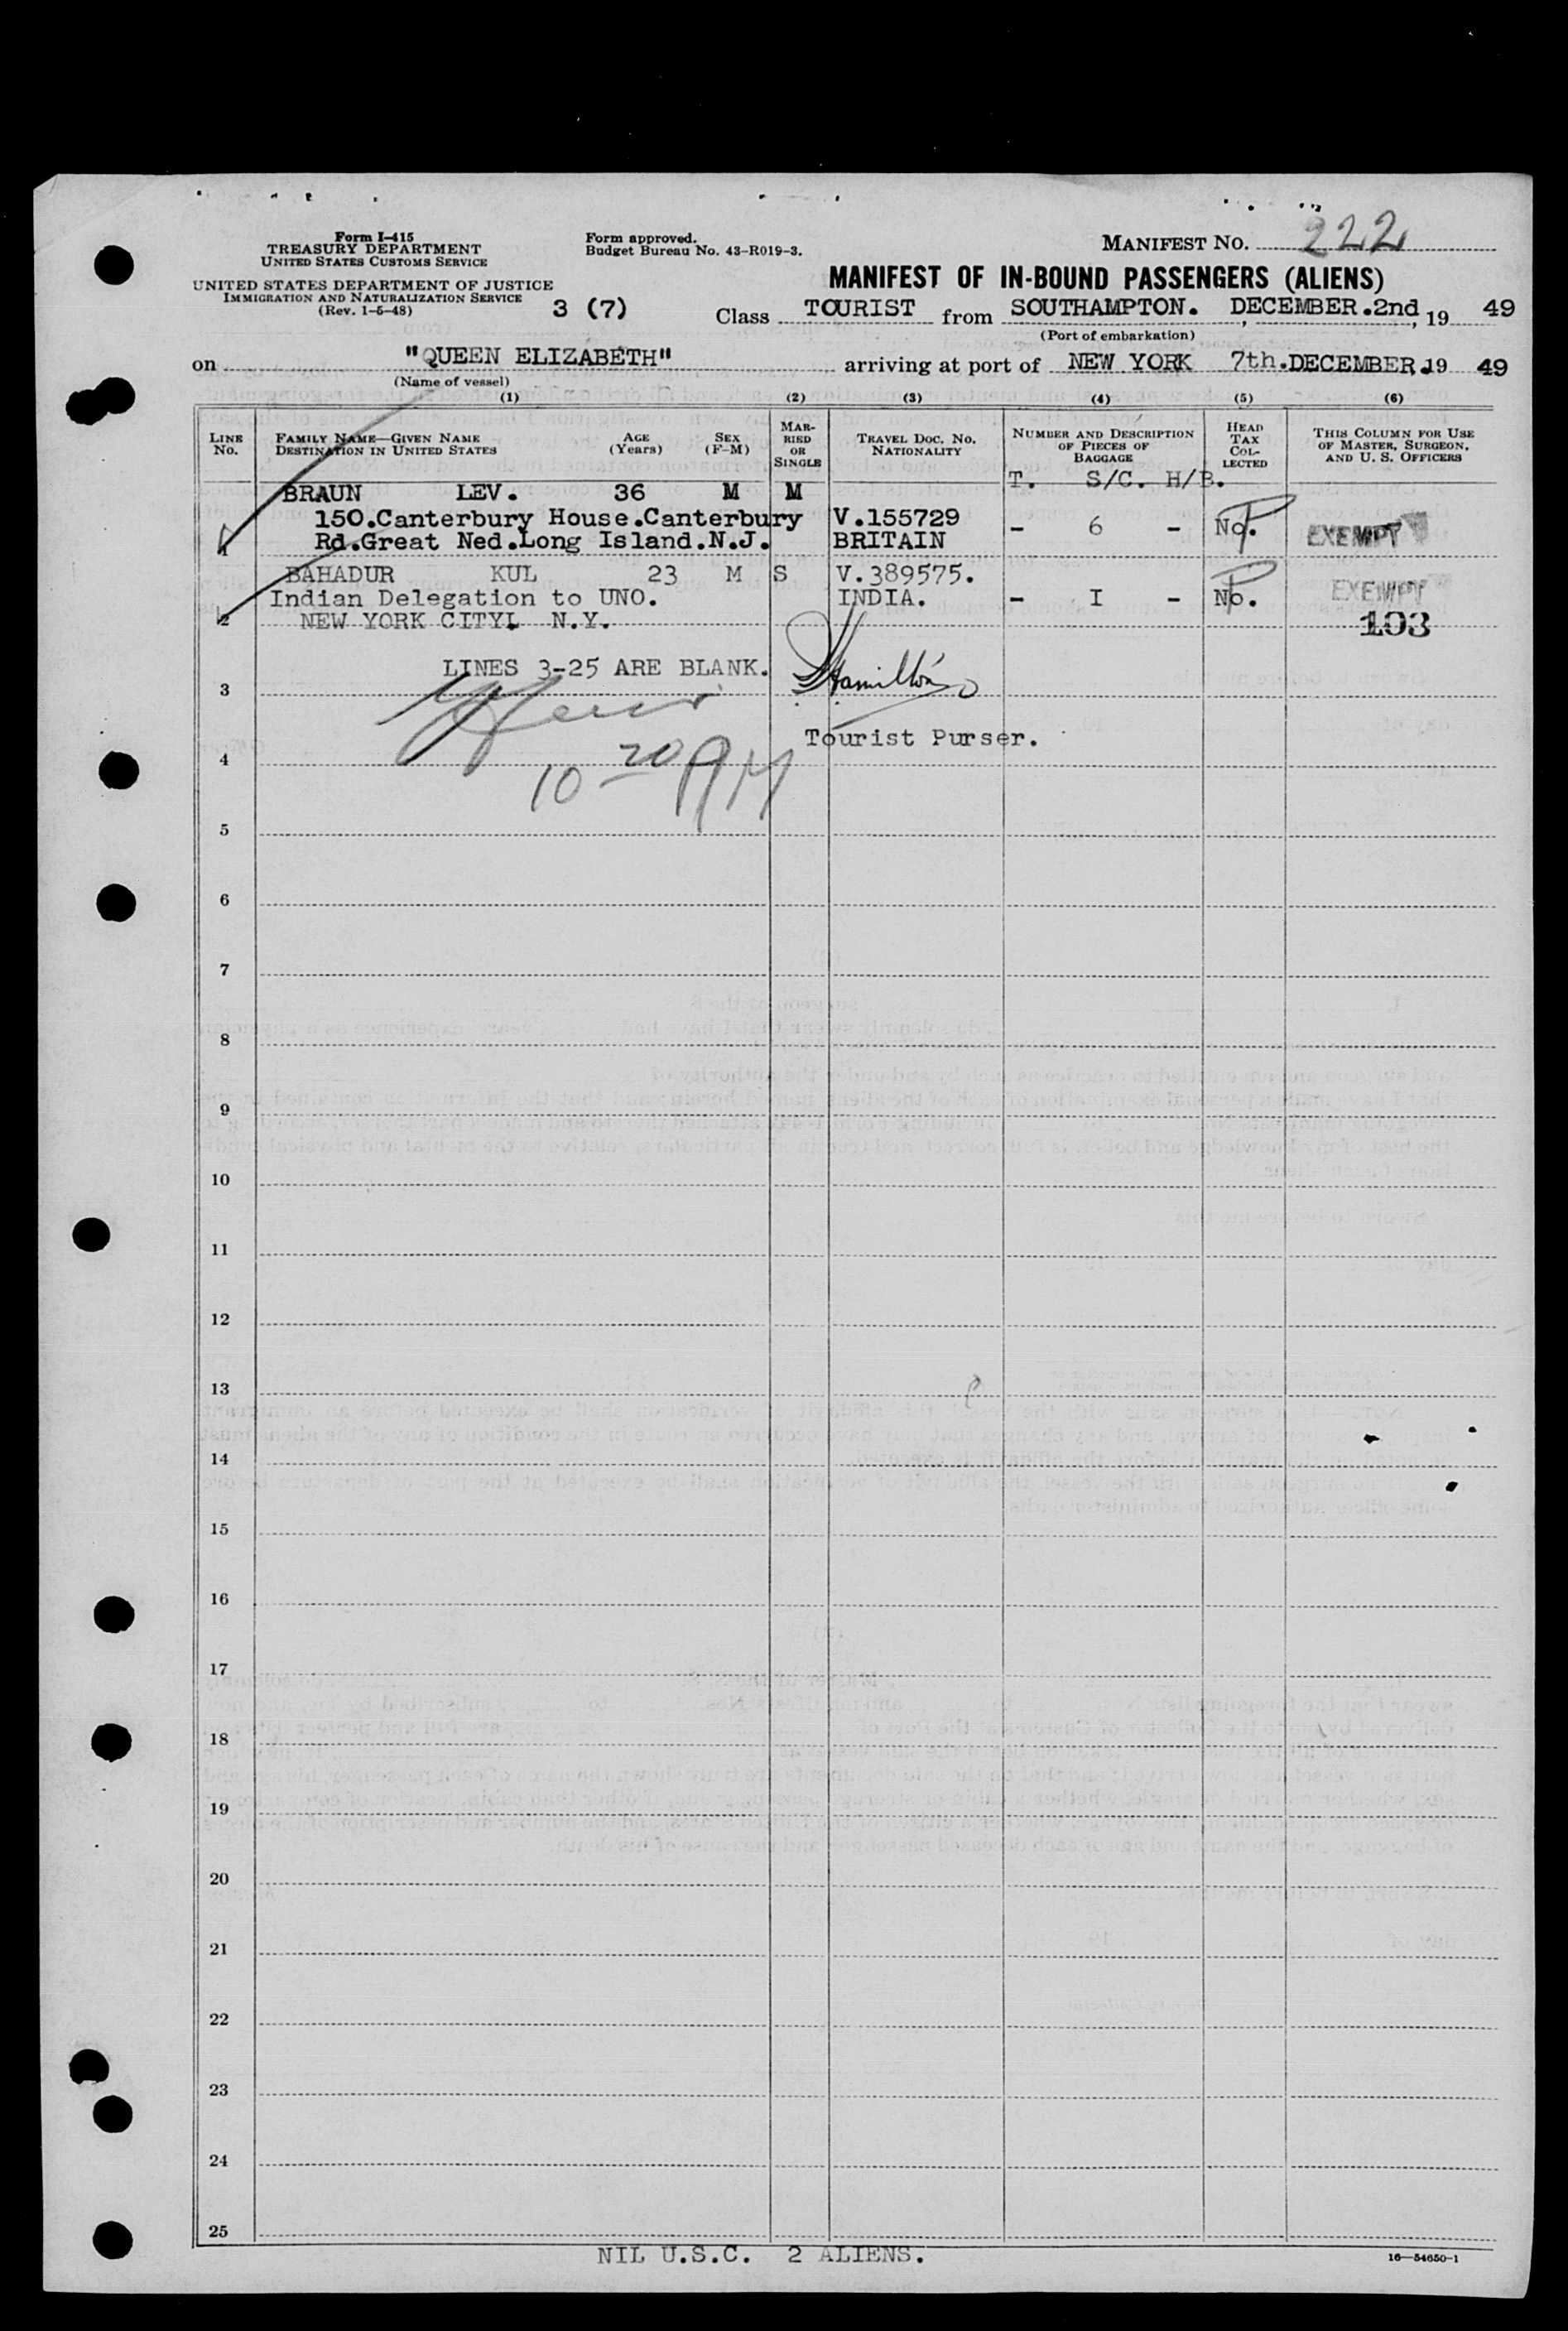 Form I-415
TREASURY DEPARTMENT
UNITED STATES CUSTOMS SERVICE
UNITED STATES DEPARTMENT OF JUSTICE
IMMIGRATION AND NATURALIZATION SERVICE
(Rev. 1-5-48)
Form approved.
Budget Bureau No. 43-R019-3.
MANIFEST NO. 222
MANIFEST OF IN-BOUND PASSENGERS (ALIENS)
3 (7) Class TOURIST from SOUTHAMPTON. DECEMBER.2nd, 19 49
(Port of embarkation)
on "QUEEN ELIZABETH" arriving at port of NEW YORK 7th.DECEMBER.19 49
(Name of vessel)
(1) (2) (3) (4) (5) (6)
LINE NO.
FAMILY NAME—GIVEN NAME
DESTINATION IN UNITED STATES
AGE (Years)
SEX (F-M)
MARRIED OR SINGLE
TRAVEL DOC. NO. NATIONALITY
NUMBER AND DESCRIPTION OF PIECES OF BAGGAGE
HEAD TAX COLLECTED
THIS COLUMN FOR USE OF MASTER, SURGEON, AND U. S. OFFICERS
T. S/C. H/B.
BRAUN LEV. 36 M M
150.Canterbury House.Canterbury V.155729 - 6 - No. EXEMPT
1 Rd.Great Ned.Long Island.N.J. BRITAIN
BAHADUR KUL 23 M S V.389575.
Indian Delegation to UNO. INDIA. - I - No. EXEMPT
2 NEW YORK CITY. N.Y. 103
LINES 3-25 ARE BLANK. Hamilton
3
Tourist Purser.
4
10 20 AM
5
6
7
8
9
10
11
12
13
14
15
16
17
18
19
20
21
22
23
24
25
NIL U.S.C. 2 ALIENS.
16—54650-1